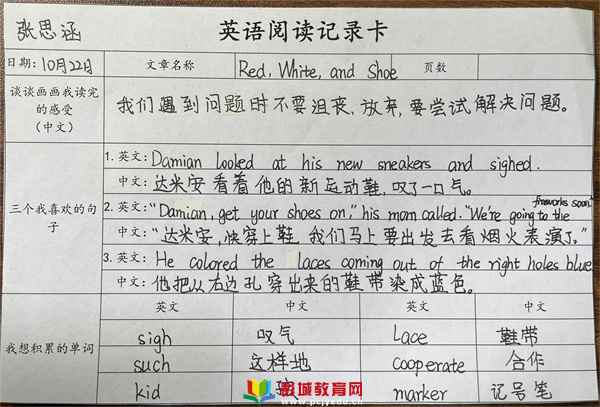 张思涵
英语阅读记录卡
日期：10月22日 文章名称 Red, White, and Shoe 页数
谈谈画画我读完的感受（中文） 我们遇到问题时不要沮丧，放弃，要尝试解决问题。
三个我喜欢的句子
1. 英文：Damian looked at his new sneakers and sighed.
中文：达米安看着他的新运动鞋，叹了一口气。
fireworks soon."
2. 英文："Damian, get your shoes on," his mom called. "We're going to the
中文："达米安，快穿上鞋，我们马上要出发去看烟火表演了。"
3. 英文：He colored the laces coming out of the right holes blue
中文：他把从右边孔穿出来的鞋带染成蓝色。
我想积累的单词
英文 中文 英文 中文
sigh 叹气 Lace 鞋带
such 这样地 cooperate 合作
kid marker 记号笔
城教育网